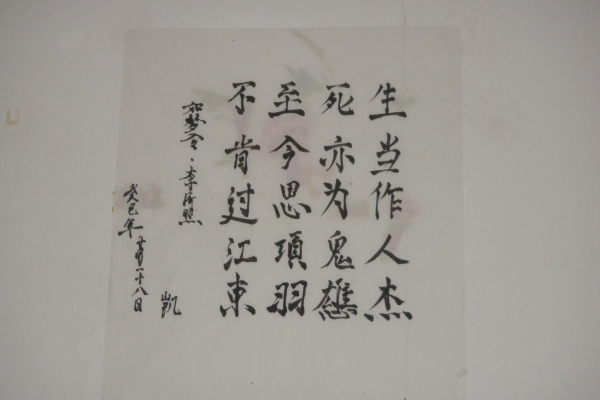 生当作人杰
死亦为鬼雄
至今思項羽
不肯过江東
如梦令·李清照
癸巳年 十八日
凯